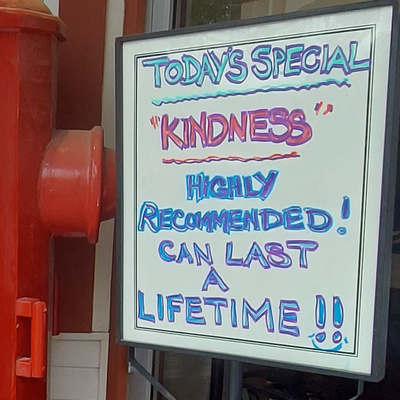 TODAY'S SPECIAL
"KINDNESS"
HIGHLY
RECOMMENDED!
CAN LAST
A
LIFETIME!!